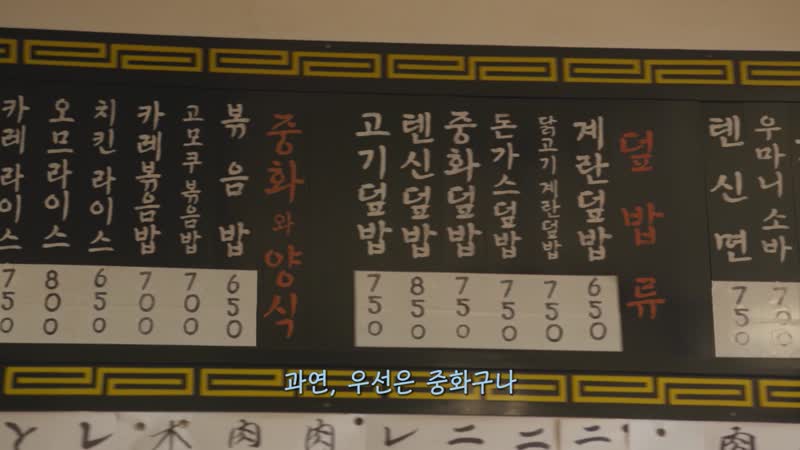 덮밥류
계란덮밥 650
닭고기계란덮밥 750
돈가스덮밥 750
중화덮밥 750
텐신덮밥 850
고기덮밥 750
중화와 양식
볶음밥 650
고모쿠볶음밥 700
카레볶음밥 700
치킨라이스 650
오므라이스 800
카레라이스 750
우마니소바
텐신면 750
과연, 우선은 중화구나
レ 木 肉 肉 レ ニ ニ ニ 肉